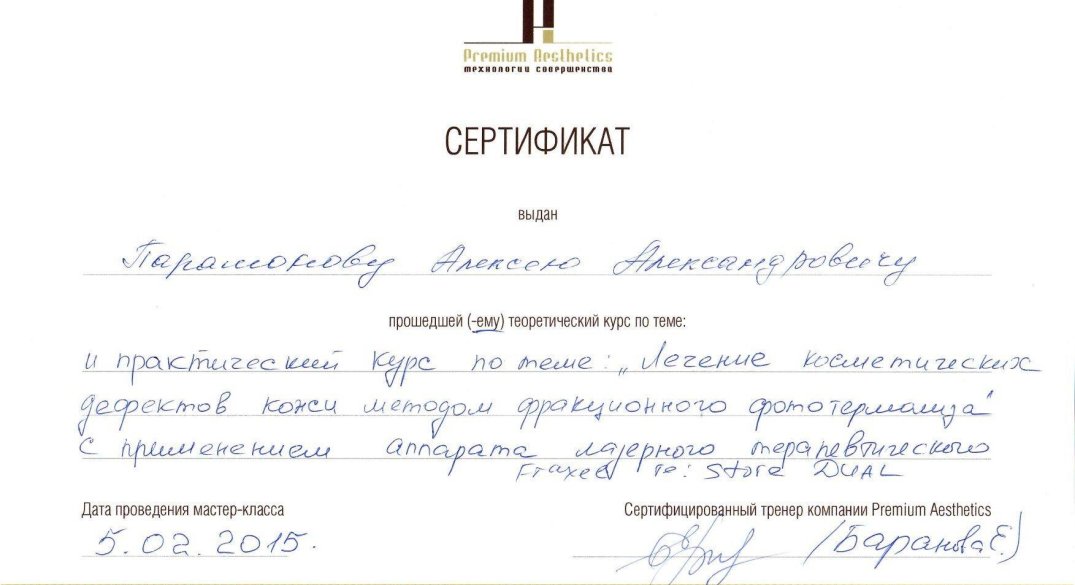 Premium Aesthetics
технологии совершенства
СЕРТИФИКАТ
выдан
Парамонову Алексею Александровичу
прошедшей (-ему) теоретический курс по теме:
и практический курс по теме: „Лечение косметических
дефектов кожи методом фракционного фототермолиза"
с применением аппарата лазерного терапевтического
Fraxel re: Store DUAL
Дата проведения мастер-класса
Сертифицированный тренер компании Premium Aesthetics
5.02.2015.
/Баранова Е./